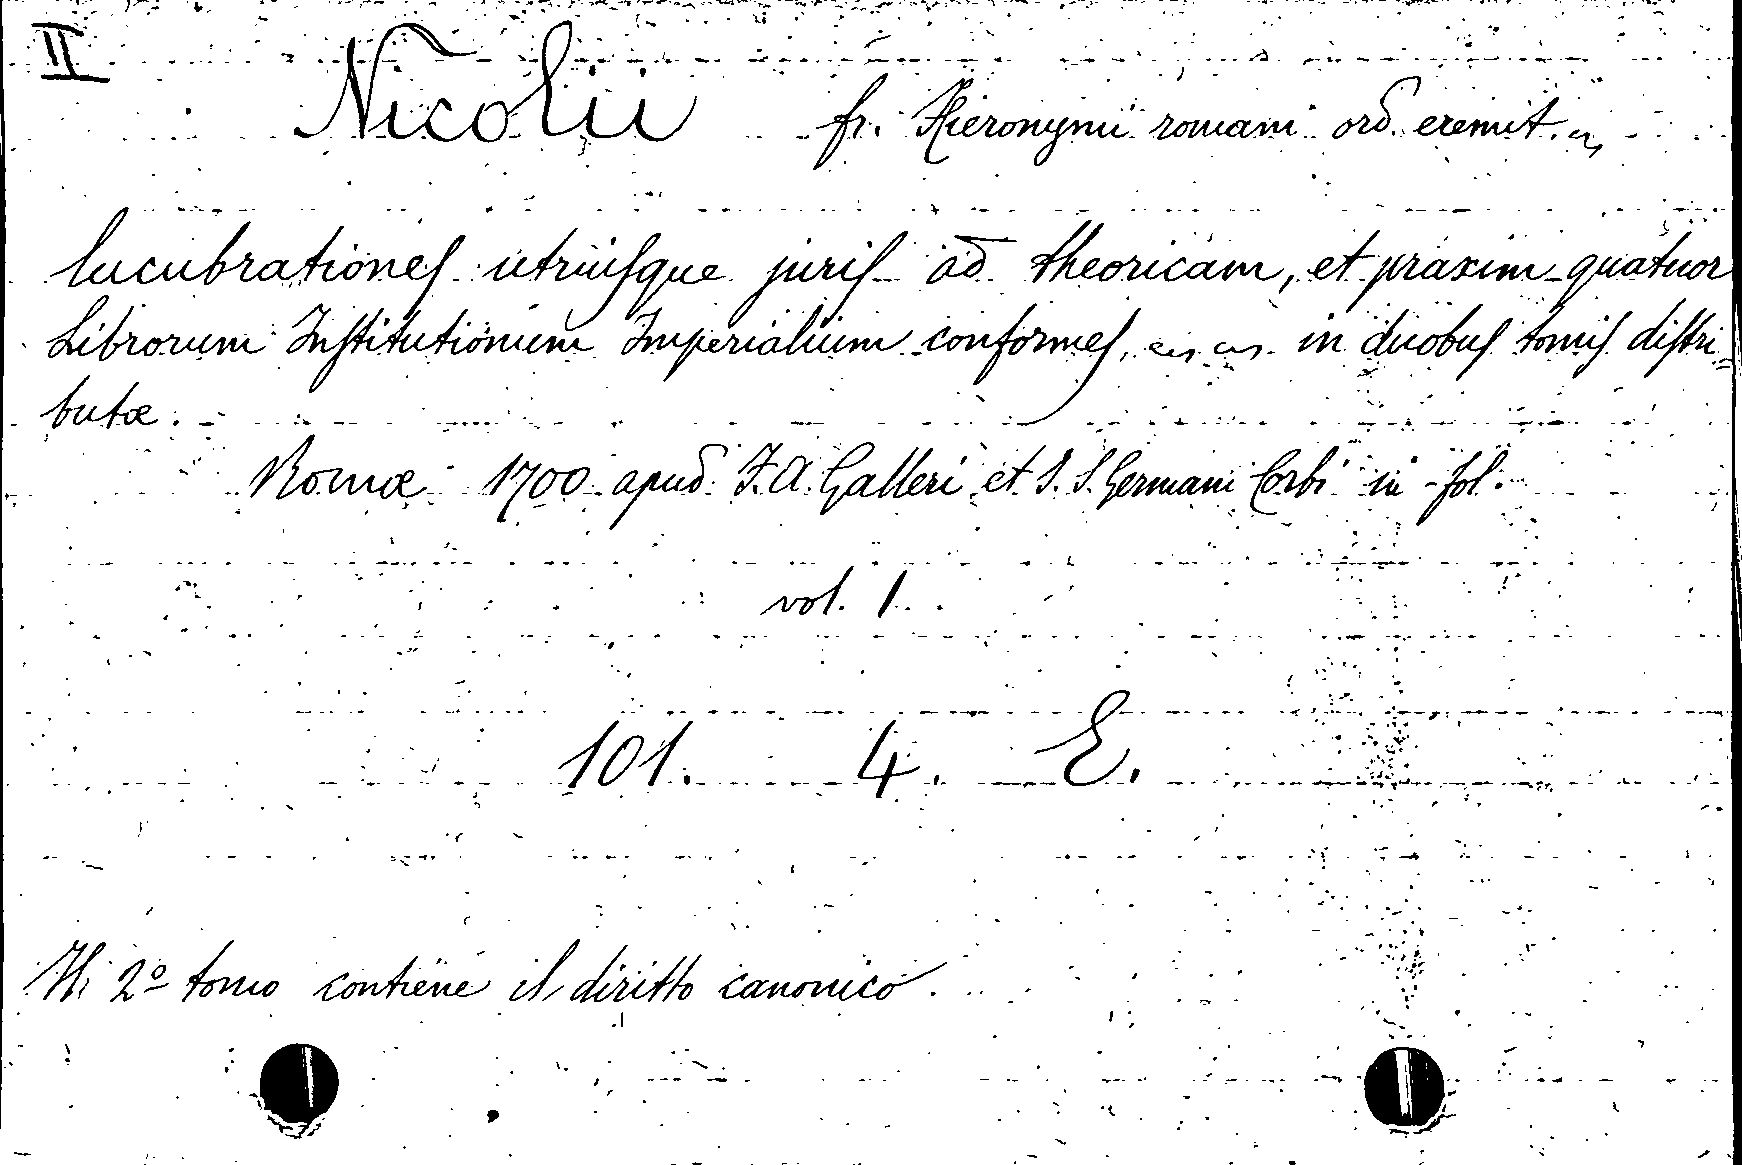 II
Nicolii fr. Hieronymi romani ord. eremit.
lucubrationes utriusque juris ad theoricam, et praxim quatuor
Librorum Institutionum Imperialium conformes, in duobus tomis distri=
butæ.
Romæ 1700 apud J. A. Galleri et S. S. Germani Corbi in fol.
vol. 1.
101. 4. E.
Il 2º tomo contiene il diritto canonico.